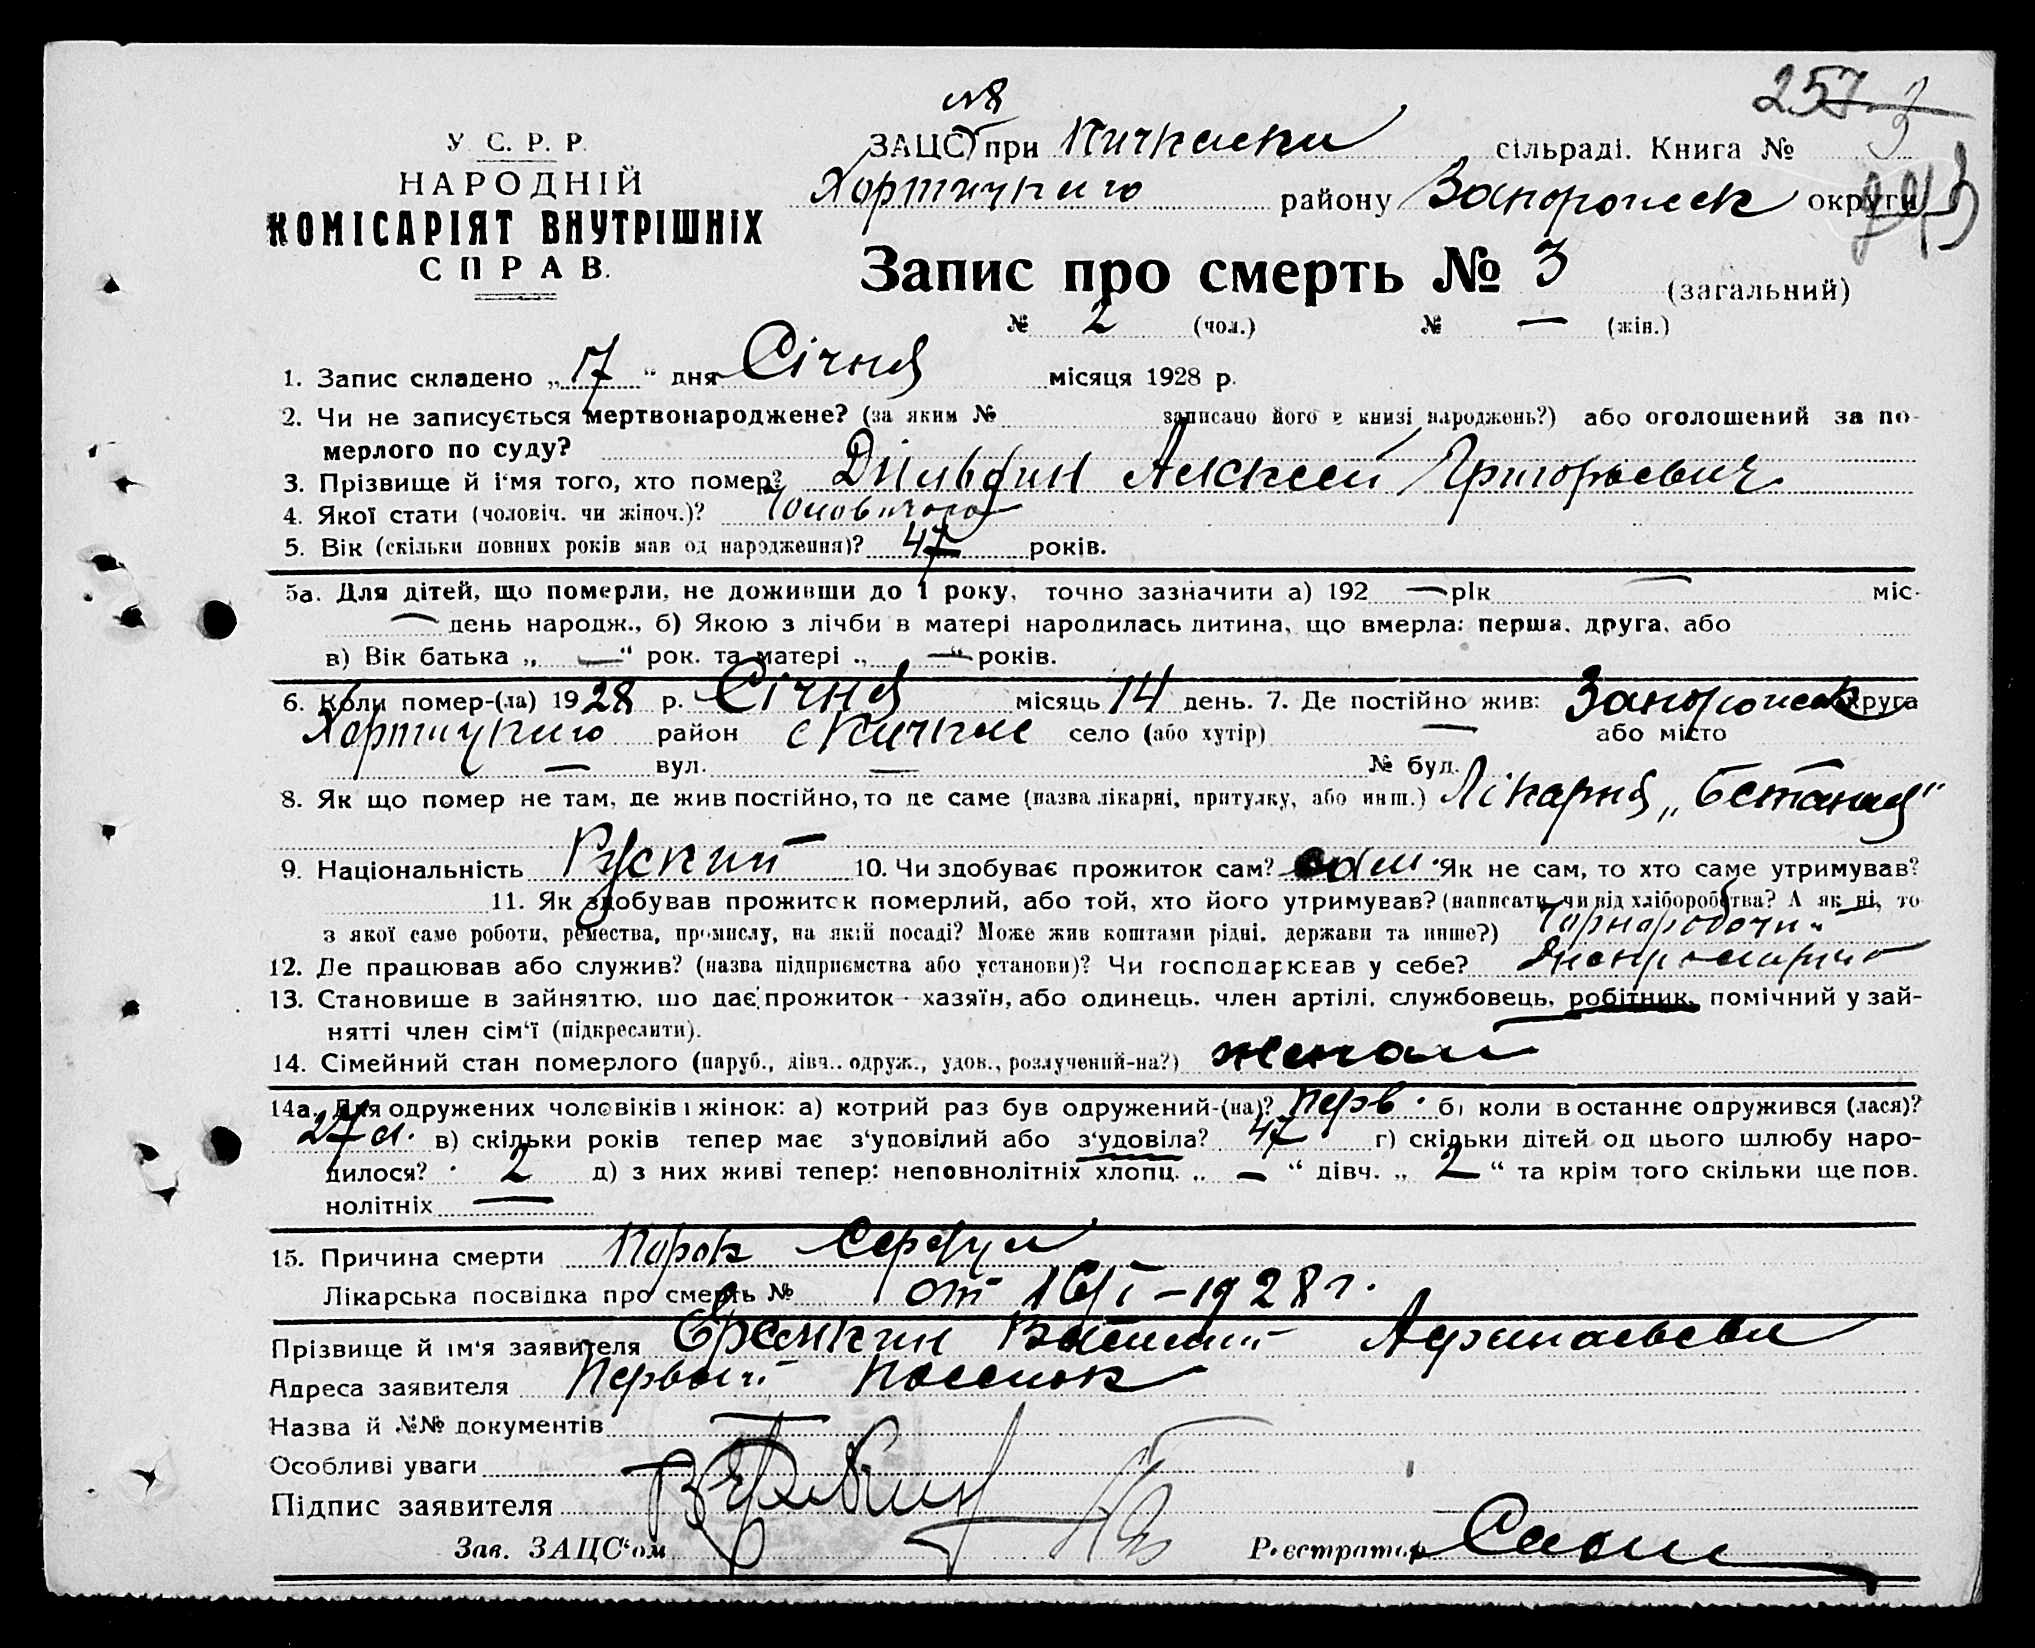 257 3
№ 8
У. С. Р. Р.
НАРОДНІЙ
КОМІСАРІЯТ ВНУТРІШНІХ
СПРАВ.
ЗАЦС при Кичкаски сільраді. Книга № 3
Хортицкиго району Запорожск округи
Запис про смерть № 3 (загальний)
№ 2 (чол.) № — (жін.)
1. Запис складено „17“ дня Січня місяця 1928 р.
2. Чи не записується мертвонароджене? (за яким № записано його в книзі народжень?) або оголошений за по-
мерлого по суду?
3. Прізвище й і'мя того, хто помер? Алексей Григорьевич
4. Якої стати (чоловіч. чи жіноч.)?
5. Вік (скільки повних років мав од народження)? 47 років.
5а. Для дітей, що померли, не доживши до 1 року, точно зазначити а) 192 — рік — міс-
— день народж., б) Якою з лічби в матері народилась дитина, що вмерла: перша, друга, або
в) Вік батька „ — “ рок. та матері „ — “ років.
6. Коли помер-(ла) 1928 р. Січня місяць 14 день. 7. Де постійно жив: Запорожск округа
Хортицкиго район с Кичкас село (або хутір) — або місто
— вул. — № буд. —
8. Як що помер не там, де жив постійно, то де саме (назва лікарні, притулку, або инш.) Лікарня „Бетания“
9. Національність Руский 10. Чи здобуває прожиток сам? сам. Як не сам, то хто саме утримував?
11. Як здобував прожиток померлий, або той, хто його утримував? (написати, чи від хліборобства? А як ні, то
з якої саме роботи, ремества, промислу, на якій посаді? Може жив коштами рідні, держави та инше?) Чорноробочий
12. Де працював або служив? (назва підприємства або установи)? Чи господарював у себе? Днепрострой
13. Становище в зайняттю, що дає прожиток - хазяїн, або одинець, член артілі, службовець, робітник, помічний у зай-
нятті член сім'ї (підкреслити).
14. Сімейний стан померлого (паруб., дівч., одруж., удов., розлучений-на?) женат
14а. Для одружених чоловіків і жінок: а) котрий раз був одружений-(на)? перв. б) коли востаннє одружився (лася)?
27 л. в) скільки років тепер має з'уповілий або з'удовіла? 47 г) скільки дітей од цього шлюбу наро-
дилося? 2 д) з них живі тепер: неповнолітніх хлопц. „ — “ дівч. „ 2 “ та крім того скільки ще пов.
нолітніх —
15. Причина смерти Порок Сердца
Лікарська посвідка про смерть № от 16/I - 1928 г.
Прізвище й ім'я заявителя Еремкин Василий
Адреса заявителя Первый поселок
Назва й №№ документів —
Особливі уваги
Підпис заявителя
Зав. ЗАЦС'ом Реєстратор